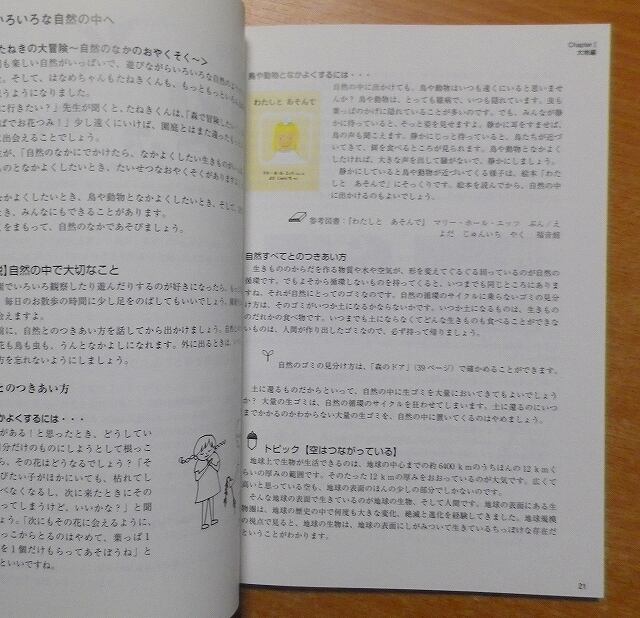 いろいろな自然の中へ
たねきの大冒険～自然のなかのおやくそく～>
も楽しい自然がいっぱいで、遊びながらいろいろな自然の
た。そして、はなめちゃんもたねきくんも、もっともっといろ
うようになりました。
に行きたい？」先生が聞くと、たねきくんは、「森で冒険したい
ばでお花つみ！」少し遠くにいけば、園庭とはまた違った
に出会えることでしょう。
生が、「自然のなかにでかけたら、なかよくしたい生きものが
ものとなかよくしたいとき、たいせつなおやくそくがあります
かよくしたいとき、鳥や動物となかよくしたいとき、そして、
とき、みんなにもできることがあります。
くをまもって、自然のなかであそびましょう。
説]自然の中で大切なこと
庭でいろいろ観察したり遊んだりするのが好きになったら、もっ
。毎日のお散歩の時間に少し足をのばしてもいいでしょう。
会えますよ。
前に、自然とのつきあい方を話してから出かけましょう。自然の
花も鳥も虫も、うんとなかよしになれます。外に出るときは、い
方を忘れないようにしましょう。
とのつきあい方
かよくするには・・・
がある！と思ったとき、どうしてい
自分だけのものにしようとして根っこ
ら、その花はどうなるでしょう？「そ
びたい子がほかにいても、枯れてし
べなくなるし、次に来たときにその
ってしまうけど、いいかな？」と聞
ょう。「次にもその花に会えるように、
っこからとるのはやめて、葉っぱ1
を1個だけもらってあそぼうね」と
といいですね。
Chapter I
大地編
鳥や動物となかよくするには・・・
わたしと あそんで
自然の中に出かけても、鳥や動物はいつも遠くにいると思いませ
んか？ 鳥や動物は、とっても敏感で、いつも隠れています。虫も
葉っぱのかげに隠れていることが多いのです。でも、みんなが静
かに待っていると、そっと姿を見せますよ。静かに耳をすませば、
鳥の声も聞こえます。静かにじっと待っていると、鳥たちが近づ
いてきて、餌を食べるところが見られます。鳥や動物となかよく
したければ、大きな声を出して騒がないで、静かにしましょう。
静かにしていると鳥や動物が近づいてくる様子は、絵本「わた
しと あそんで」にそっくりです。絵本を読んでから、自然の中
に出かけるのもよいでしょう。
参考図書：『わたしと あそんで』 マリー・ホール・エッツ ぶん/え
よだ じゅんいち やく 福音館
自然すべてとのつきあい方
生きもののからだを作る物質や水や空気が、形を変えてぐるぐる回っているのが自然の
循環です。でもよそから循環しないものを持ってくると、いつまでも同じところにありま
すね。それが自然にとってのゴミなのです。自然の循環のサイクルに乗らないゴミの見分
け方は、そのゴミがいつか土になるかならないかです。いつか土になるものは、生きもの
のだれかの食べ物です。いつまでも土にならなくてどんな生きものも食べることができな
いものは、人間が作り出したゴミなので、必ず持って帰りましょう。
自然のゴミの見分け方は、「森のドア」（39ページ）で確かめることができます。
土に還るものだからといって、自然の中に生ゴミを大量においてきてもよいでしょう
か？ 大量の生ゴミは、自然の循環のサイクルを狂わせてしまいます。土に還るのにいつ
までかかるのかわからない大量の生ゴミを、自然の中に置いてくるのはやめましょう。
トピック【空はつながっている】
地球上で生物が生活できるのは、地球の中心までの約6400kmのうちほんの12kmく
らいの厚みの範囲です。そのたった12kmの厚みをおおっているのが大気です。広くて
高いと思っている空も、地球の表面のほんの少しの部分でしかないのです。
そんな地球の表面で生きているのが地球の生物、そして人間です。地球の表面にある生
物圏は、地球の歴史の中で何度も大きな変化、絶滅と進化を経験してきました。地球規模
の視点で見ると、地球の生物は、地球の表面にしがみついて生きているちっぽけな存在だ
ということがわかります。
21